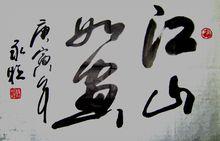 江山
如画
庚寅年
永恒